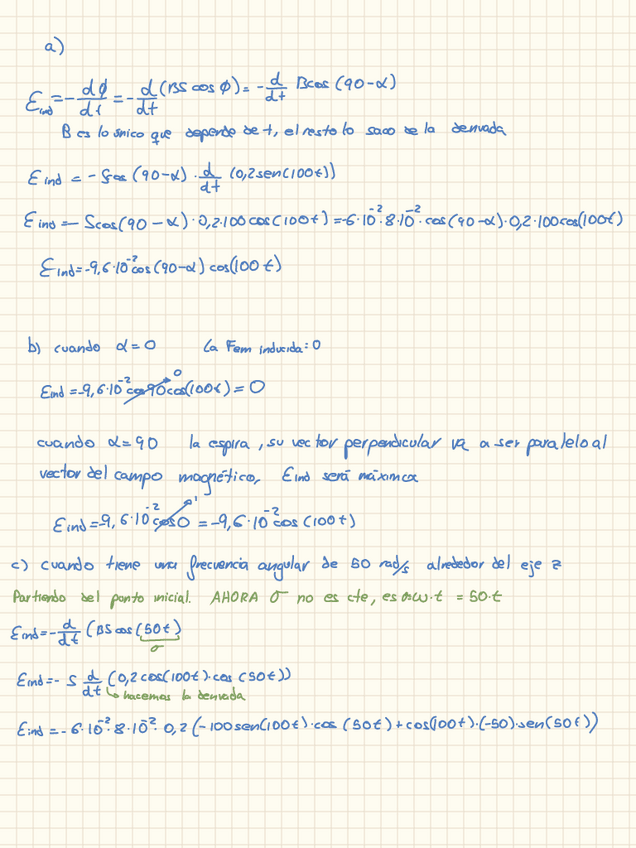 a)
Ɛind = - dϕ/dt = - d/dt (BS cos ϕ) = - d/dt Bcos (90-α)
B es lo único que depende de t, el resto lo saco de la derivada
Ɛind = - Scos (90-α) · d/dt (0,2sen(100t))
Ɛind = - Scos(90-α)·0,2·100cos(100t) = -6·10⁻²·8·10⁻²·cos(90-α)·0,2·100cos(100t)
Ɛind = -9,6·10⁻²cos(90-α) cos(100t)
b) cuando α=0 La Fem inducida: 0
Ɛind = -9,6·10⁻² cos90 0 cos(100t) = 0
cuando α=90 la espira, su vector perpendicular va a ser paralelo al
vector del campo magnético, Ɛind será máxima
Ɛind = -9,6·10⁻² cos0 1 = -9,6·10⁻² cos (100t)
c) cuando tiene una frecuencia angular de 50 rad/s alrededor del eje z
Partiendo del punto inicial. AHORA σ no es cte, es σ=ω·t = 50·t
Ɛind = - d/dt (BS cos (50t)
σ
Ɛind = - S d/dt (0,2cos(100t)·cos (50t))
↳ hacemos la derivada
Ɛind = -6·10⁻²·8·10⁻²·0,2 (-100sen(100t)·cos (50t)+cos(100t)·(-50)·sen(50t))